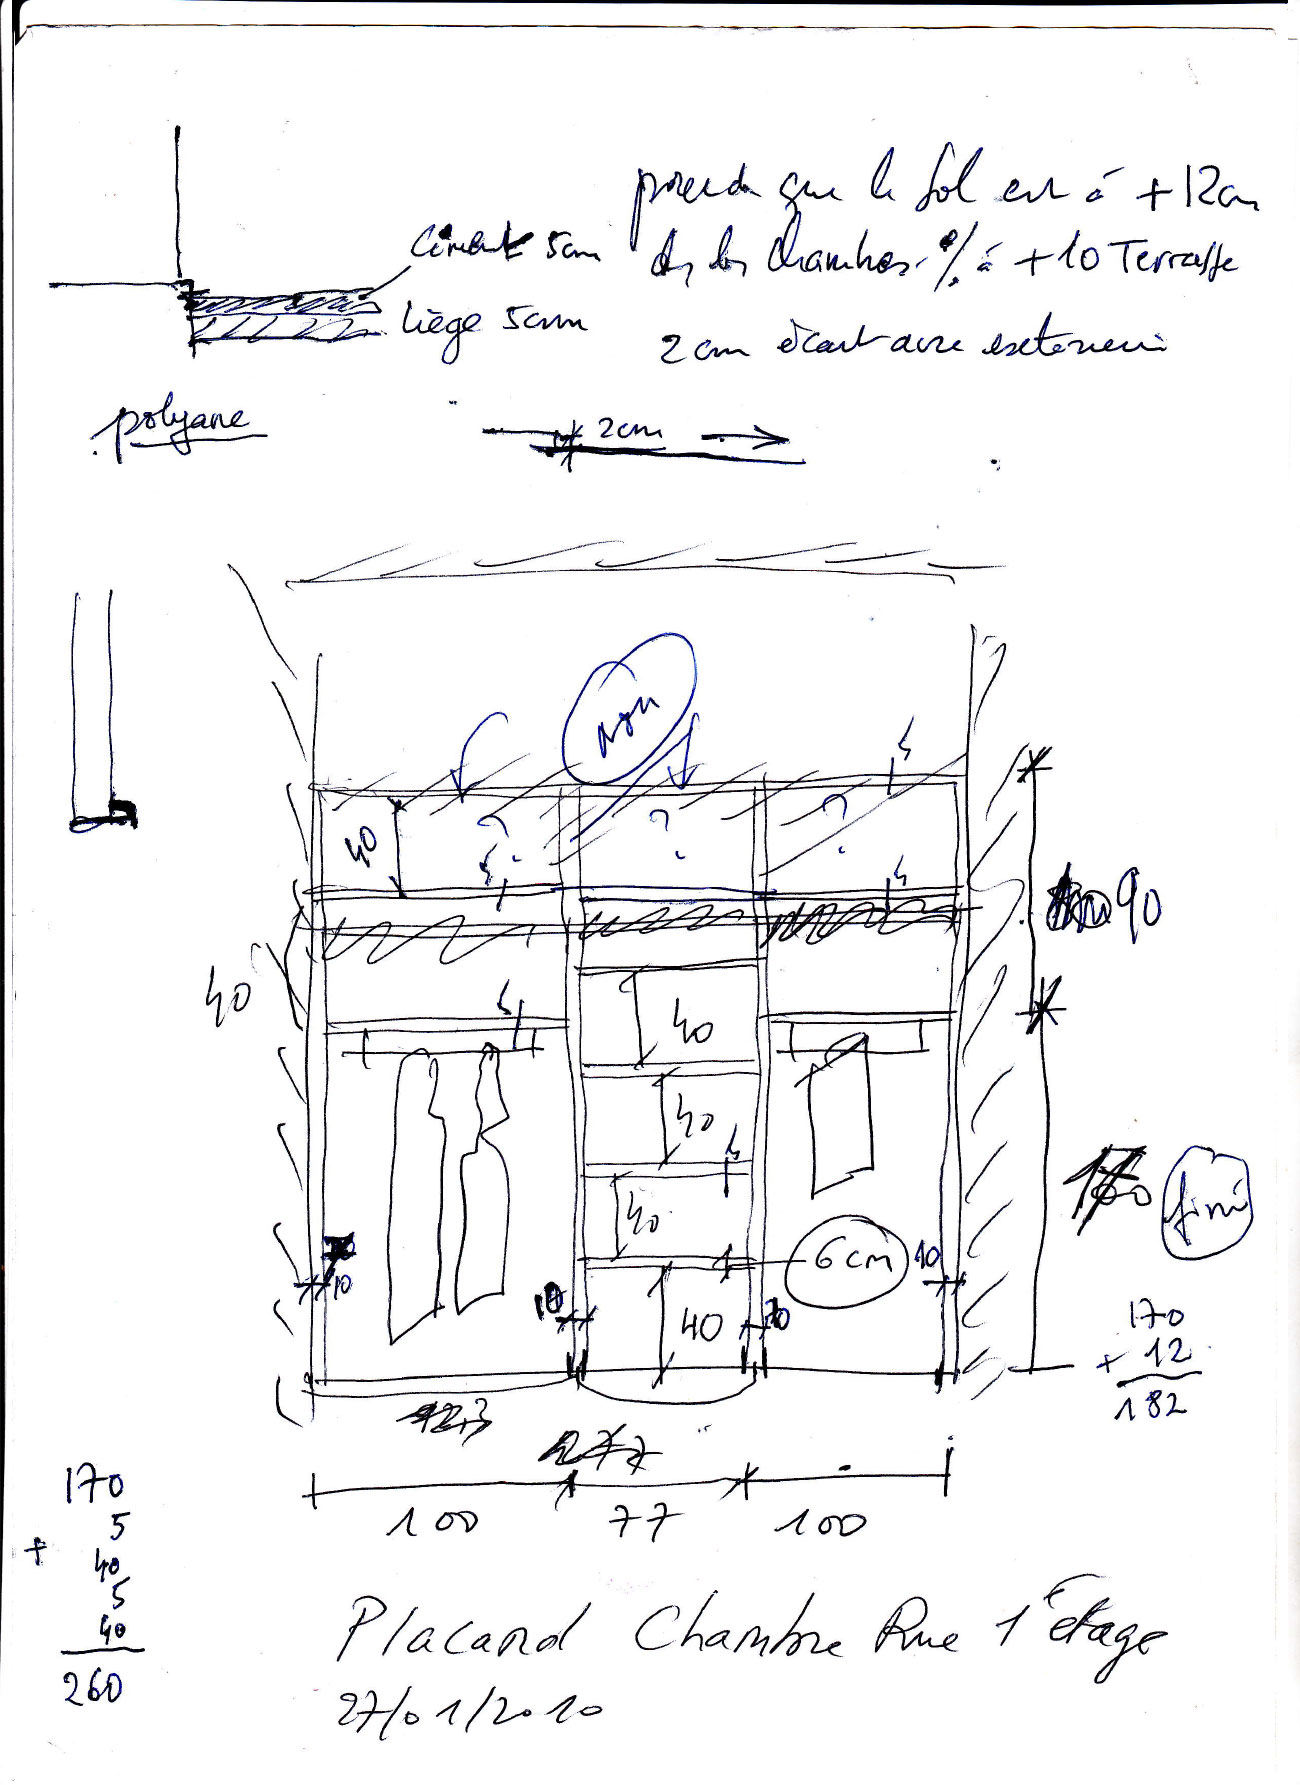 prendre que le sol est à +12cm
ds les chambres % à +10 Terrasse
2cm écart avec exterieur
ciment 5cm
liège 5cm
polyane
2cm
non
5
40
?
?
?
5
5
90
40
5
40
40
5
40
fini
6cm
10
10
10
10
40
170
+ 12
182
277
100
77
100
170
5
+ 40
5
40
260
Placard Chambre Rue 1 étage
27/01/2010